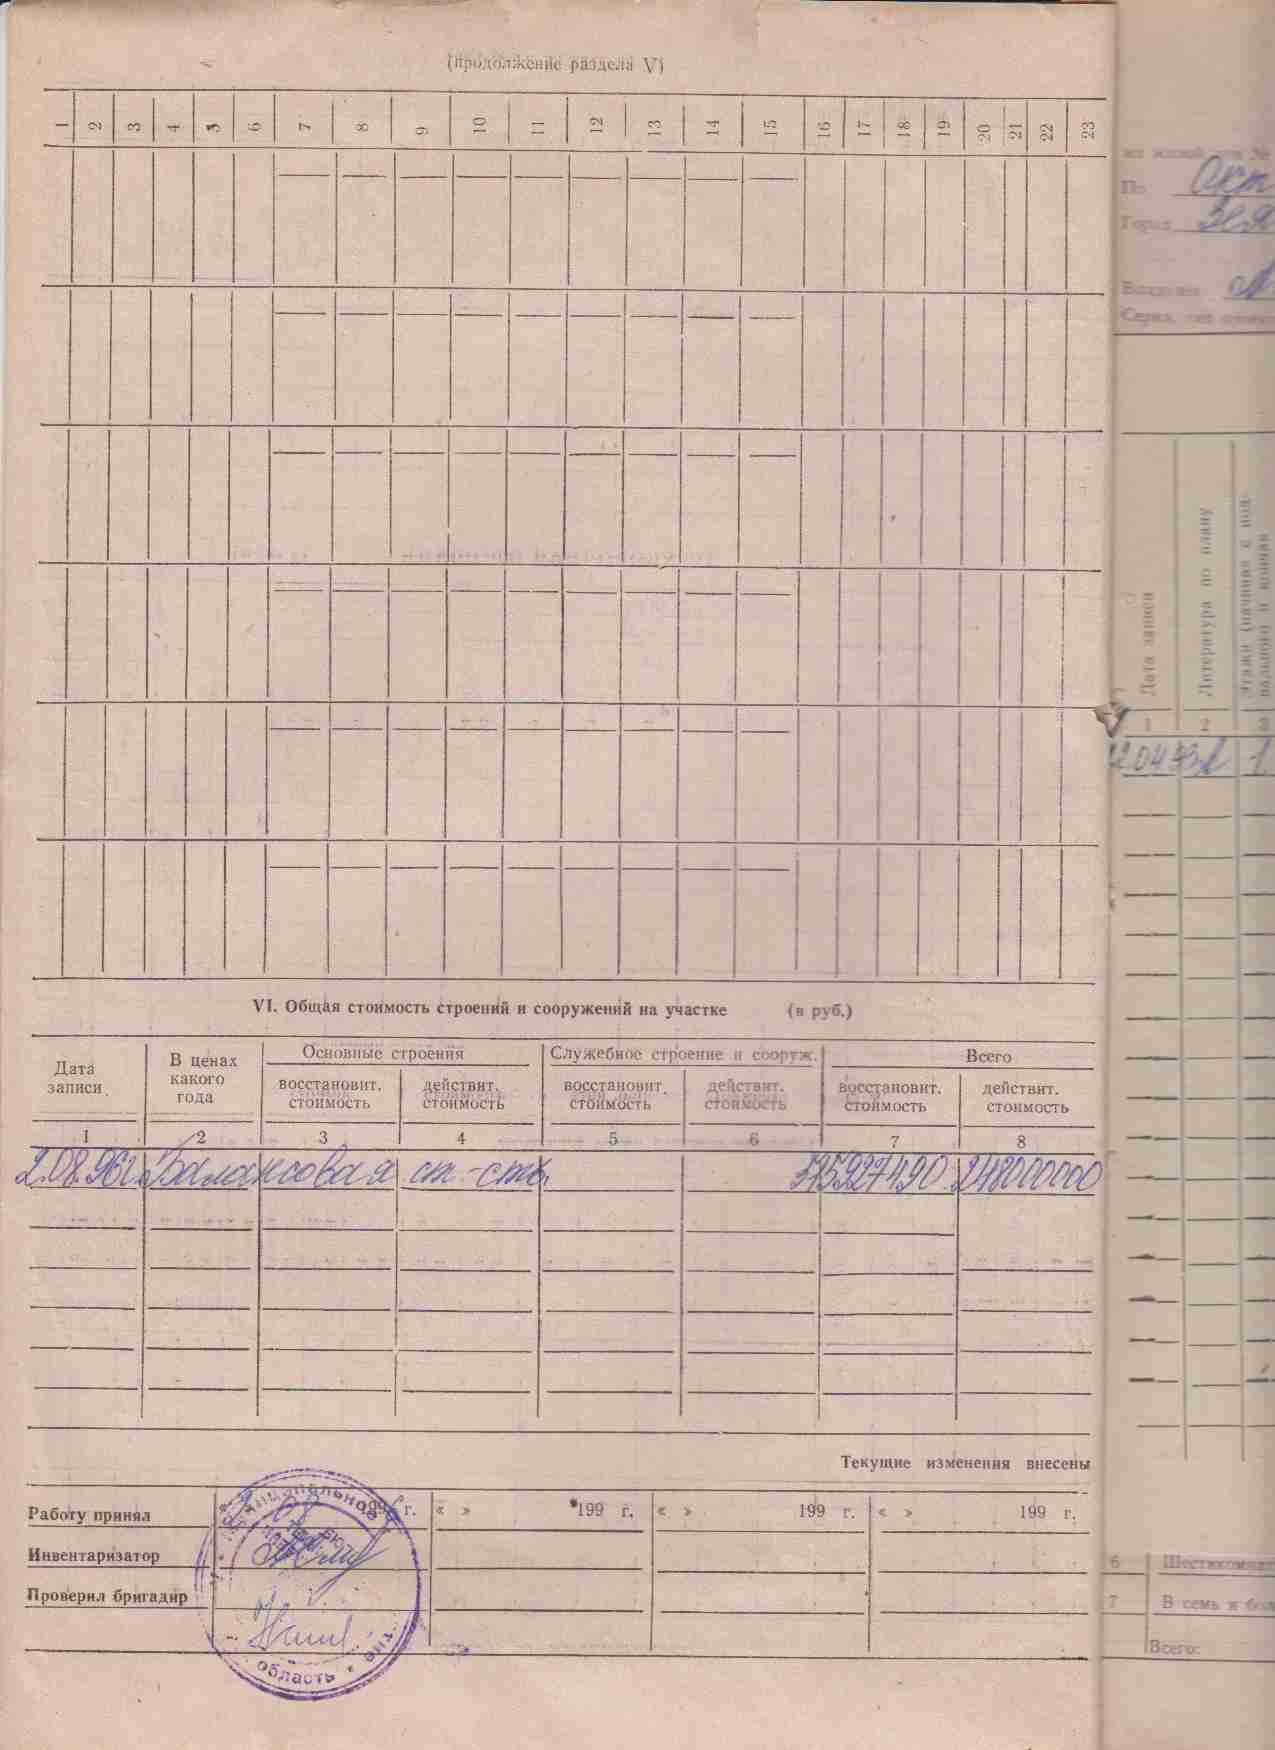 (продолжение раздела V)
1 2 3 4 5 6 7 8 9 10 11 12 13 14 15 16 17 18 19 20 21 22 23
VI. Общая стоимость строений и сооружений на участке (в руб.)
Дата записи
В ценах какого года
Основные строения
Служебное строение и сооруж.
Всего
восстановит. стоимость
действит. стоимость
восстановит. стоимость
действит. стоимость
восстановит. стоимость
действит. стоимость
1 2 3 4 5 6 7 8
2.08.96г. Балансовая ст-сть 375927490 248000000
Текущие изменения внесены
Работу принял
199 г. « » 199 г. « » 199 г. « » 199 г.
Инвентаризатор
Проверил бригадир
область
По Окт
Город Зея
Владелец
Серия, тип
Дата записи
Литература по плану
Этажи (начиная с под-
вального и кончая
1 2 3
1
6 Шестикомнат
7 В семь и бол
Всего: